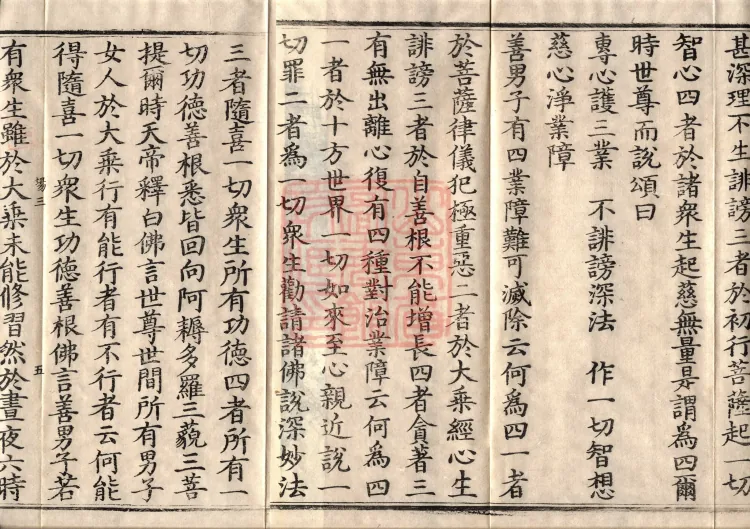 甚深理不生誹謗三者於初行菩薩起一切
智心四者於諸衆生起慈無量是謂爲四爾
時世尊而說頌曰
專心護三業　不誹謗深法　作一切智想
慈心淨業障
善男子有四業障難可滅除云何爲四一者
於菩薩律儀犯極重惡二者於大乗經心生
誹謗三者於自善根不能增長四者貪著三
有無出離心復有四種對治業障云何爲四
一者於十方世界一切如來至心親近說一
切罪二者爲一切衆生勸請諸佛說深妙法
三者隨喜一切衆生所有功德四者所有一
切功德善根悉皆回向阿耨多羅三藐三菩
提爾時天帝釋白佛言世尊世間所有男子
女人於大乗行有能行者有不行者云何能
得隨喜一切衆生功德善根佛言善男子若
五
有衆生雖於大乗未能修習然於晝夜六時